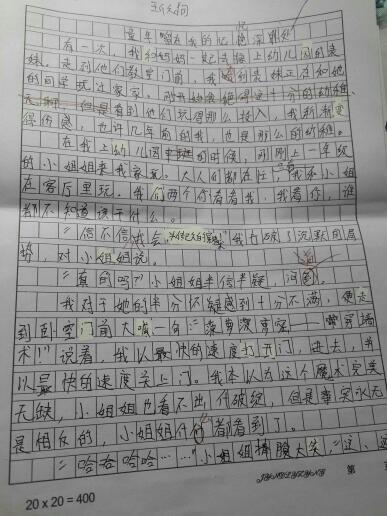 童年留在我的记忆深处
有一天，我和妈妈一起去接上幼儿园的表
妹。走到他们教室门前，我看到表妹正在和她
的同学玩过家家。刚开始我觉得这十分的幼稚、
无聊，但是看到他们玩得那么投入，我渐渐变
得伤感，也许几年前的我，也是那么的幼稚。
在我上幼儿园中班的时候，刚刚上一年级
的小姐姐来我家玩。大人们都在忙，我和小姐
在客厅里玩。我们两个你看看我，我看你，谁
都不知道该干什么。
"信不信我会" 我打破了沉默的局
势，对小姐姐说。
"真的吗？"小姐姐半信半疑，问道。
我对于她的半分怀疑感到十分不满，便走
到卧室门前大喊一句："穿墙
术！"说着，我以最快的速度打开门，进去，我
以最快的速度关上门。我本以为这个魔术完美
无缺，小姐姐也看不出什破绽，但是事实永远
是相反的，小姐姐什么都看到了。
"哈哈哈哈……"小姐姐捧腹大笑，"这、这
20×20=400
第